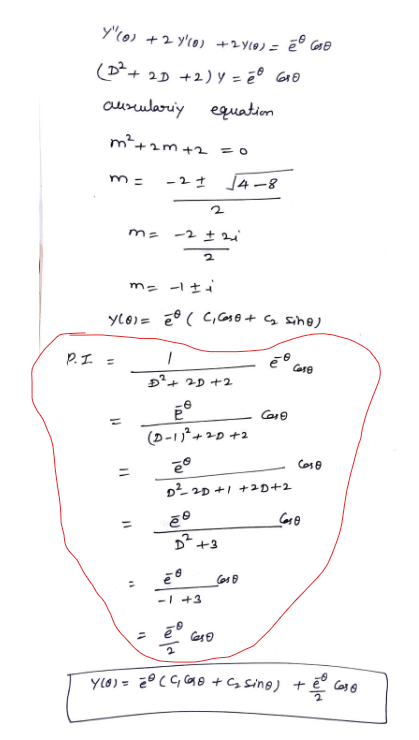 y''(θ) + 2y'(θ) + 2y(θ) = e^-θ Cosθ
(D² + 2D + 2) y = e^-θ Cosθ
auxulariy equation
m² + 2m + 2 = 0
m = -2 ± √4-8 / 2
m = -2 ± 2i / 2
m = -1 ± i
y(θ) = e^-θ ( C₁ Cosθ + C₂ Sinθ)
P.I = 1 / D² + 2D + 2 e^-θ Cosθ
= e^-θ / (D-1)² + 2D + 2 Cosθ
= e^-θ / D² - 2D + 1 + 2D + 2 Cosθ
= e^-θ / D² + 3 Cosθ
= e^-θ / -1 + 3 Cosθ
= e^-θ / 2 Cosθ
y(θ) = e^-θ ( C₁ Cosθ + C₂ Sinθ) + e^-θ / 2 Cosθ